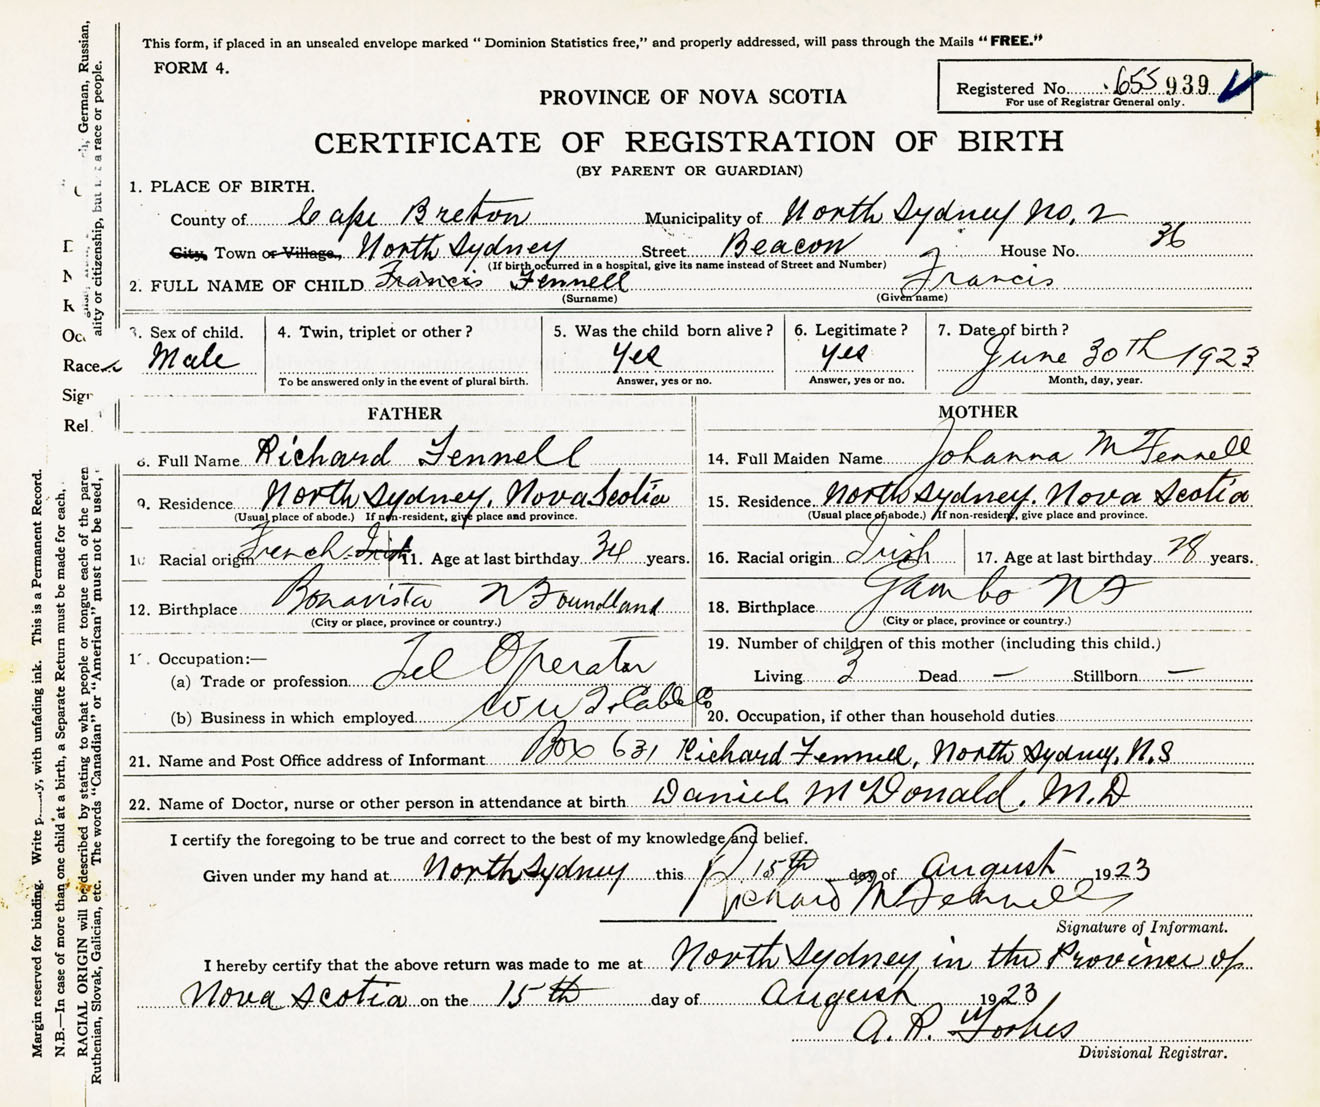 This form, if placed in an unsealed envelope marked " Dominion Statistics free," and properly addressed, will pass through the Mails " FREE."
FORM 4.
Registered No. 655 939
For use of Registrar General only.
PROVINCE OF NOVA SCOTIA
CERTIFICATE OF REGISTRATION OF BIRTH
(BY PARENT OR GUARDIAN)
1. PLACE OF BIRTH.
County of Cape Breton Municipality of North Sydney No. 2
City, Town or Village, North Sydney Street Beacon House No. 36
(If birth occurred in a hospital, give its name instead of Street and Number)
2. FULL NAME OF CHILD Francis Fennell Francis
(Surname) (Given name)
3. Sex of child. 4. Twin, triplet or other ? 5. Was the child born alive ? 6. Legitimate ? 7. Date of birth ?
Male Yes Yes June 30th 1923
To be answered only in the event of plural birth. Answer, yes or no. Answer, yes or no. Month, day, year.
FATHER MOTHER
8. Full Name Richard Fennell 14. Full Maiden Name Johanna M Fennell
9. Residence North Sydney, Nova Scotia 15. Residence North Sydney. Nova Scotia
(Usual place of abode.) If non-resident, give place and province. (Usual place of abode.) If non-resident, give place and province.
10 Racial origin French Irish 11. Age at last birthday 34 years. 16. Racial origin Irish 17. Age at last birthday 28 years.
12. Birthplace Bonavista N Foundland 18. Birthplace Gambo N F
(City or place, province or country.) (City or place, province or country.)
1 . Occupation:— 19. Number of children of this mother (including this child.)
(a) Trade or profession Tel Operator Living 3 Dead — Stillborn —
(b) Business in which employed W U T. Cable Co 20. Occupation, if other than household duties
21. Name and Post Office address of Informant Box 631 Richard Fennell, North Sydney, N.S
22. Name of Doctor, nurse or other person in attendance at birth Daniel McDonald, M.D
I certify the foregoing to be true and correct to the best of my knowledge and belief.
Given under my hand at North Sydney this 15th day of August 1923
Richard M Fennell
Signature of Informant.
I hereby certify that the above return was made to me at North Sydney in the Province of
Nova Scotia on the 15th day of August 1923
A. R. Forbes
Divisional Registrar.
Margin reserved for binding. Write p y, with unfading ink. This is a Permanent Record.
N.B.—In case of more than one child at a birth, a Separate Return must be made for each,
RACIAL ORIGIN will be described by stating to what people or tongue each of the paren
Ruthenian, Slovak, Galician, etc. The words "Canadian" or "American" must not be used,
German, Russian,
ality or citizenship, but a race or people.
Race
Sigr
Rel.